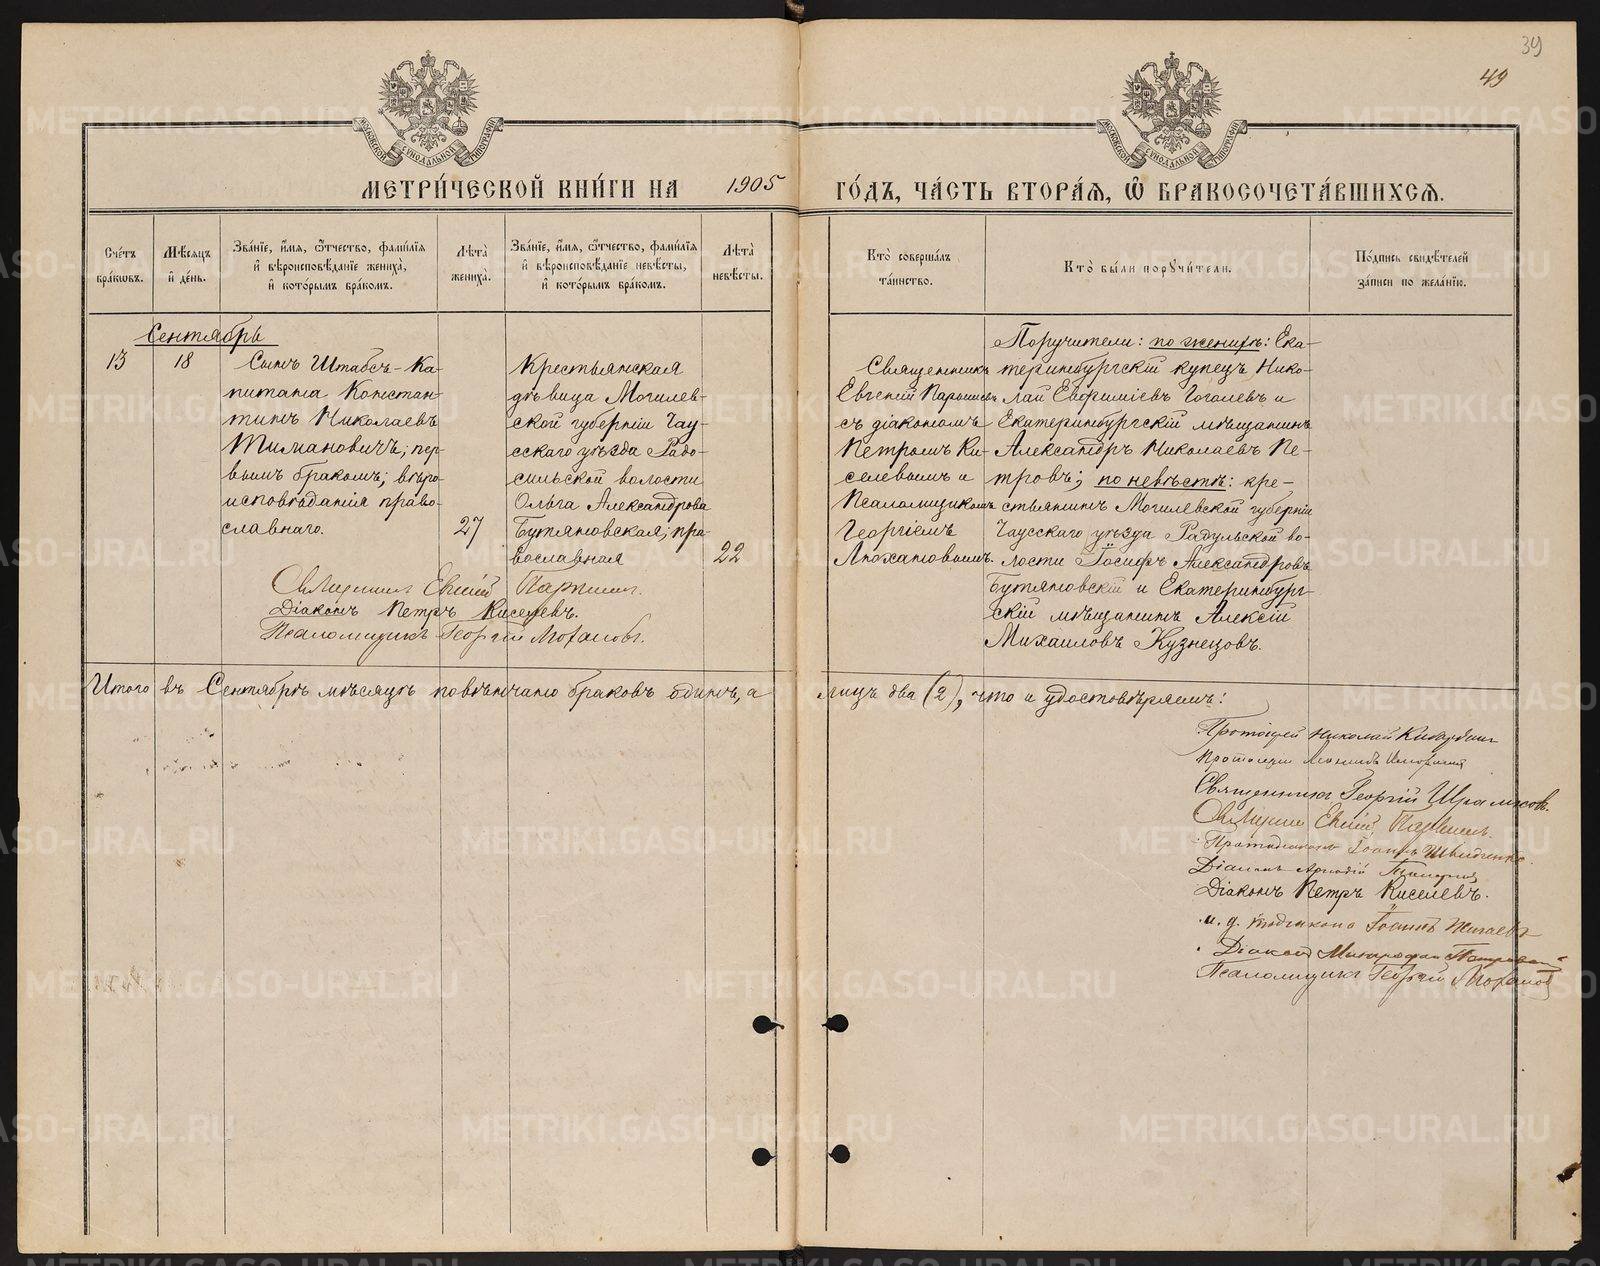 39
49
МОСКОВСКОЙ СѴНОДАЛЬНОЙ ТИПОГРАФІИ
МОСКОВСКОЙ СѴНОДАЛЬНОЙ ТИПОГРАФІИ
МЕТРИ́ЧЕСКОЙ КНИ́ГИ НА 1905 ГО́ДЪ, ЧА́СТЬ ВТОРА́Я, Ѽ БРАКОСОЧЕТА́ВШИХСЯ.
Сче́тъ бра́кѡвъ.
Мѣ́сяцъ и҆ де́нь.
Зва́нїе, и҆́мя, ѻ҆́тчество, фами́лїя и҆ вѣроисповѣ́данїе жениха̀, и҆ кото́рымъ бра́комъ.
Лѣ́та жениха̀.
Зва́нїе, и҆́мя, ѻ҆́тчество, фами́лїя и҆ вѣроисповѣ́данїе невѣ́сты, и҆ кото́рымъ бра́комъ.
Лѣ́та невѣ́сты.
Кто̀ соверша́лъ та́инство.
Кто̀ бы́ли порꙋчи́тели.
По́дпись свидѣ́телей за́писи по жела́нїю.
Сентябрь
13
18
Сынъ Штабсъ-Ка-
питана Констан-
тинъ Николаевъ
Тимановичъ; пер-
вымъ бракомъ; вѣро-
исповѣданія право-
славнаго.
27
Крестьянская
дѣвица Могилев-
ской губерніи Чау-
сскаго уѣзда Радо-
сильской волости
Ольга Александрова
Бутяновская; пра-
вославная
22
Священникъ
Евгеній Парышевъ
съ діакономъ
Петромъ Ки-
селевымъ и
Псаломщикомъ
Георгіемъ
Лохановымъ.
Поручители: по женихѣ: Ека-
теринбургскій купецъ Нико-
лай Евфиміевъ Гоголевъ и
Екатеринбургскій мѣщанинъ
Александръ Николаевъ Пе-
тровъ; по невѣстѣ: кре-
стьянинъ Могилевской губерніи
Чаусскаго уѣзда Радульской во-
лости Іосифъ Александровъ
Бутяновскій и Екатеринбург-
скій мѣщанинъ Алексій
Михаиловъ Кузнецовъ.
Священникъ Евгеній
Діаконъ Петръ Киселевъ.
Псаломщикъ Георгій Лохановъ.
Итого въ Сентябрѣ мѣсяцѣ повѣнчано браковъ одинъ, а лицъ два (2), что и удостовѣряемъ:
Протоіерей Николай
Протоіерей
Священникъ Георгій
Священникъ Евгеній
Протодіаконъ Іоаннъ
Діаконъ Аркадій
Діаконъ Петръ Киселевъ.
и. д. Іоаннъ
Діаконъ Митрофанъ
Псаломщикъ Георгій Лохановъ
METRIKI.GASO-URAL.RU